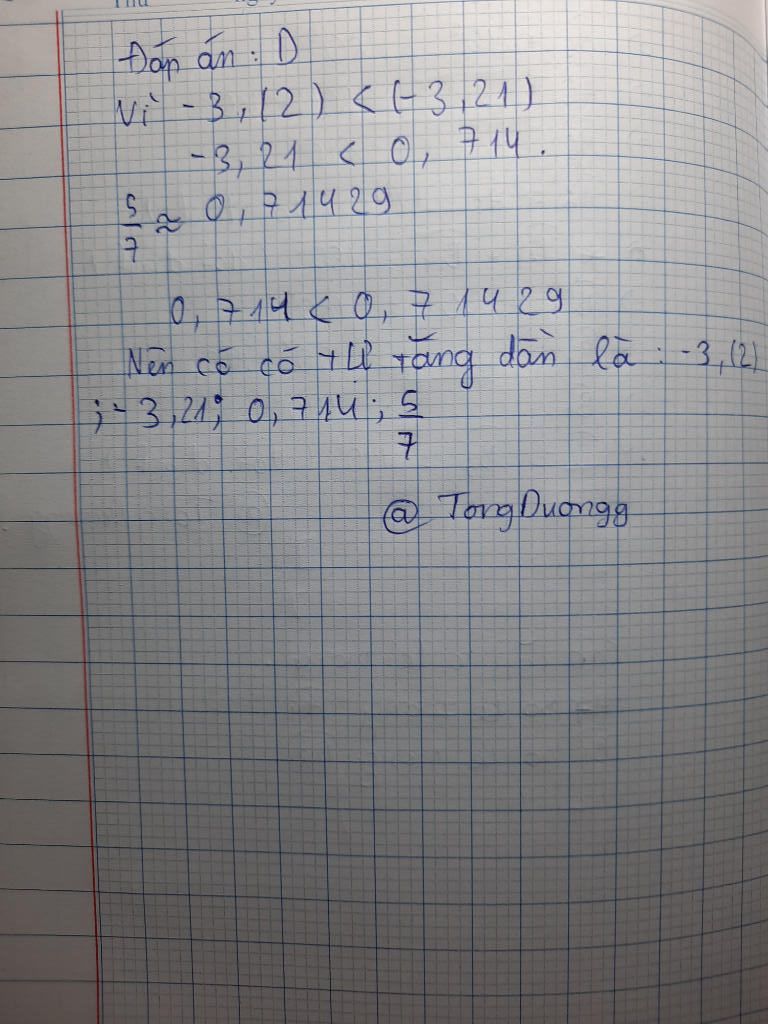 Đáp án : D
Vì -3,(2) < (-3,21)
-3,21 < 0,714.
5/7 ≈ 0,71429
0,714 < 0,71429
Nên có có tự tăng dần là : -3,(2)
;-3,21; 0,714; 5/7
@ TongDuongg